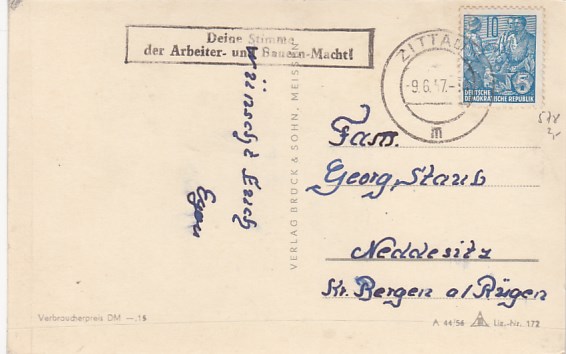 Deine Stimme
der Arbeiter- und Bauern-Macht!
ZITTAU
-9.6.57.-
m
10
5
DEUTSCHE
DEMOKRATISCHE REPUBLIK
578
2,-
wünscht Euch
Egon
VERLAG BRÜCK & SOHN, MEISSEN
Fam.
Georg Staub
Neddesitz
Kr. Bergen a/Rügen
Verbraucherpreis DM —.15
A 44/56 Liz.-Nr. 172